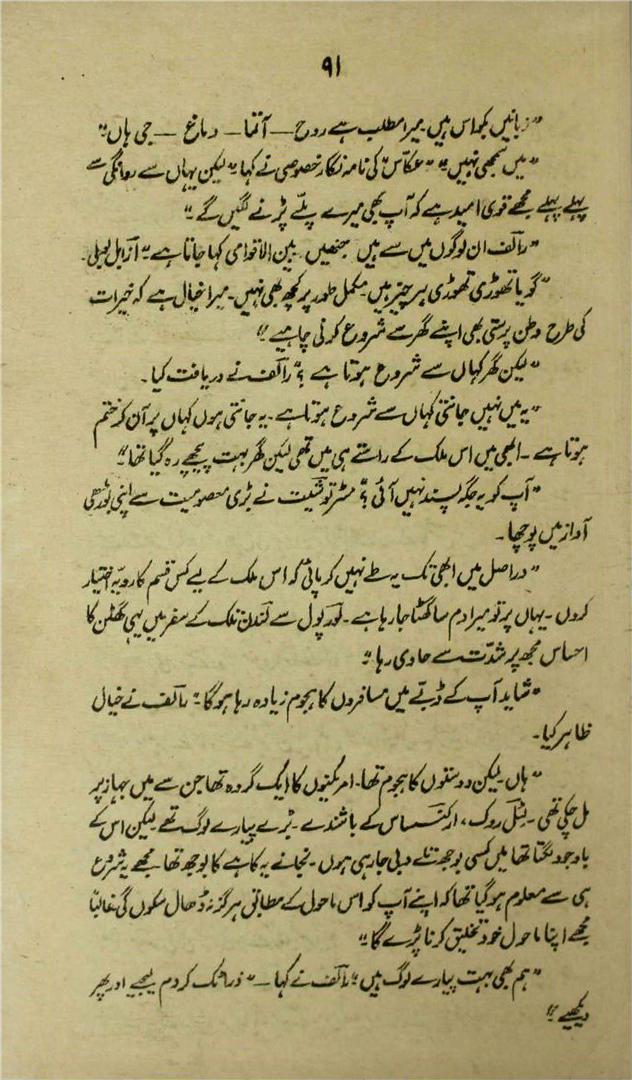 ۹۱
"زبانیں بکواس ہیں۔ میرا مطلب ہے روح — آتما — دماغ — جی ہاں"
"میں سمجھی نہیں" "عکاس" کی نامہ نگار خصوصی نے کہا "لیکن یہاں سے روانگی سے
پہلے پہلے مجھے قوی امید ہے کہ آپ بھی میرے پلّے پڑنے لگیں گے"
"رالف ان لوگوں میں سے ہیں جنھیں بین الاقوامی کہا جاتا ہے" ازابل بولی۔
"گویا تھوڑی تھوڑی ہر چیز ہیں۔ مکمل طور پر کچھ بھی نہیں۔ میرا خیال ہے کہ خیرات
کی طرح وطن پرستی بھی اپنے گھر سے شروع کرنی چاہیے"
"لیکن گھر کہاں سے شروع ہوتا ہے؟" رالف نے دریافت کیا۔
"یہ میں نہیں جانتی کہاں سے شروع ہوتا ہے۔ یہ جانتی ہوں کہاں پر آن کر ختم
ہوتا ہے۔ ابھی میں اس ملک کے راستے ہی میں تھی لیکن گھر بہت پیچھے رہ گیا تھا"
"آپ کو یہ جگہ پسند نہیں آئی؟" مسٹر توشیت نے بڑی معصومیت سے اپنی بوڑھی
آواز میں پوچھا۔
"دراصل میں ابھی تک یہ طے نہیں کر پائی کہ اس ملک کے لیے کس قسم کا رویّہ اختیار
کروں۔ یہاں پر تو میرا دم سا گھٹا جا رہا ہے۔ لورپول سے لندن تلک کے سفر میں یہی گھٹن کا
احساس مجھ پر شدّت سے حاوی رہا"
"شاید آپ کے ڈبّے میں مسافروں کا ہجوم زیادہ رہا ہوگا" رالف نے خیال
ظاہر کیا۔
"ہاں لیکن دوستوں کا ہجوم تھا۔ امریکنوں کا ایک گروہ تھا جن سے میں جہاز پر
مل چکی تھی۔ لٹل روک، ارکنساس کے باشندے۔ بڑے پیارے لوگ تھے لیکن اس کے
باوجود لگتا تھا میں کسی بوجھ تلے دبی جا رہی ہوں۔ نجانے یہ کاہے کا بوجھ تھا۔ مجھے یہ شروع
ہی سے معلوم ہو گیا تھا کہ اپنے آپ کو اس ماحول کے مطابق ہرگز نہ ڈھال سکوں گی غالباً
مجھے اپنا ماحول خود تخلیق کرنا پڑے گا"
"ہم بھی بہت پیارے لوگ ہیں" رالف نے کہا — "ذرا ٹک کر دم لیجیے اور پھر
دیکھیے"